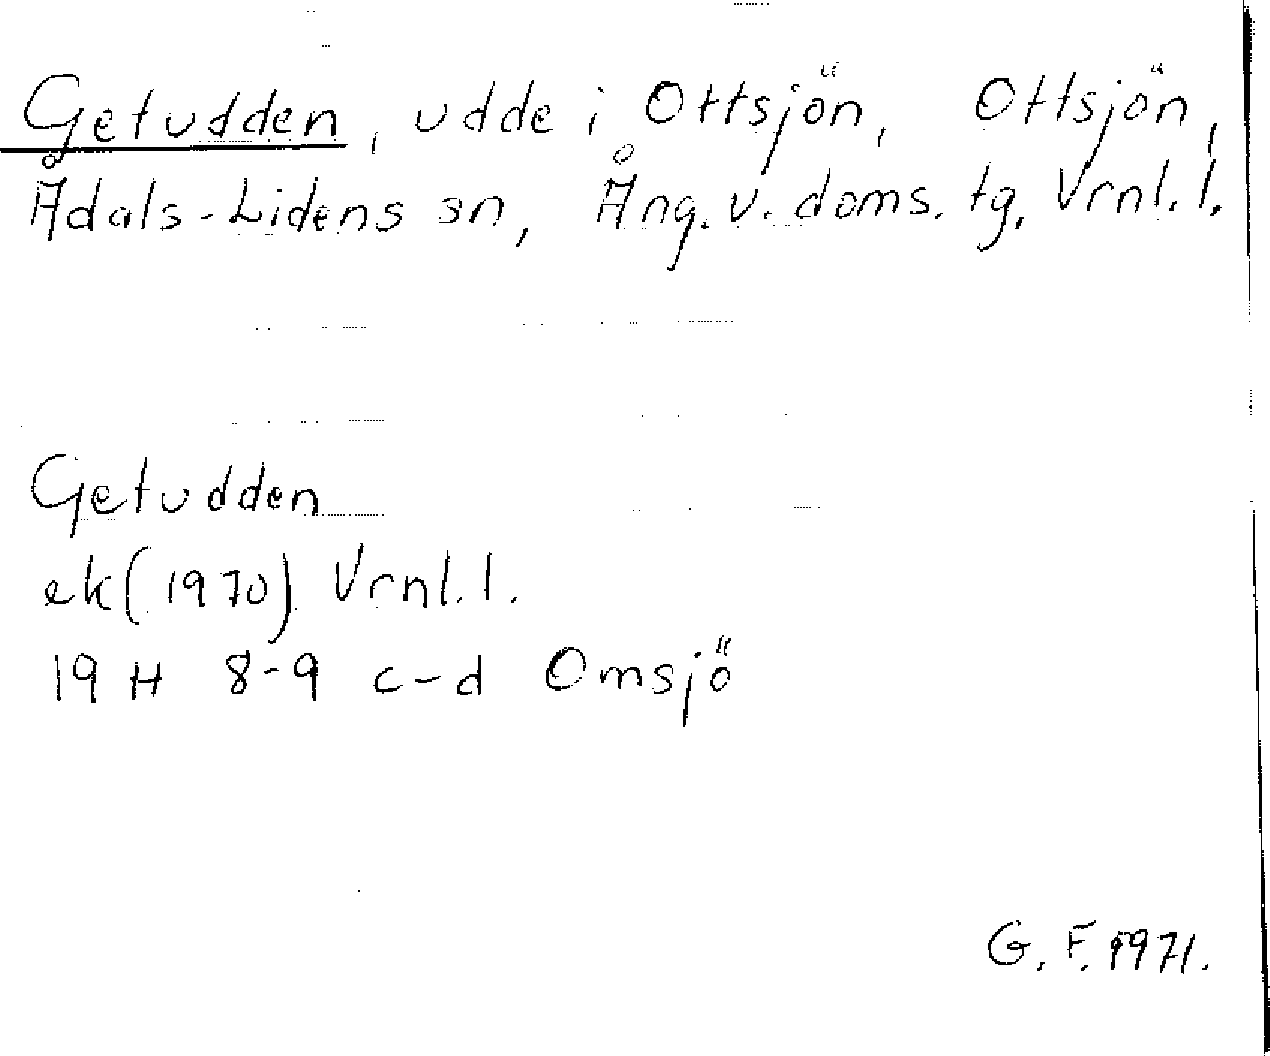 Getudden, udde i Ottsjön, Ottsjön,
Ådals-Lidens sn, Ång. v. doms. tg. Vrnl. l.
Getudden
ek (1970) Vrnl. l.
19 H 8-9 c-d Omsjö
G. F. 1971.